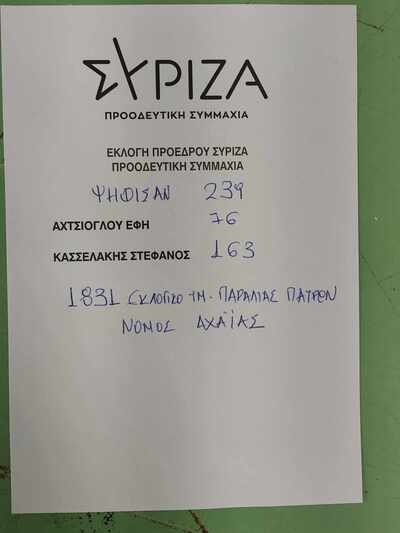 ΣΥΡΙΖΑ
ΠΡΟΟΔΕΥΤΙΚΗ ΣΥΜΜΑΧΙΑ
ΕΚΛΟΓΗ ΠΡΟΕΔΡΟΥ ΣΥΡΙΖΑ
ΠΡΟΟΔΕΥΤΙΚΗ ΣΥΜΜΑΧΙΑ
ΨΗΦΙΣΑΝ 239
ΑΧΤΣΙΟΓΛΟΥ ΕΦΗ 76
ΚΑΣΣΕΛΑΚΗΣ ΣΤΕΦΑΝΟΣ 163
1831 ΕΚΛΟΓΙΚΟ ΤΜ. ΠΑΡΑΛΙΑΣ ΠΑΤΡΩΝ
ΝΟΜΟΣ ΑΧΑΪΑΣ